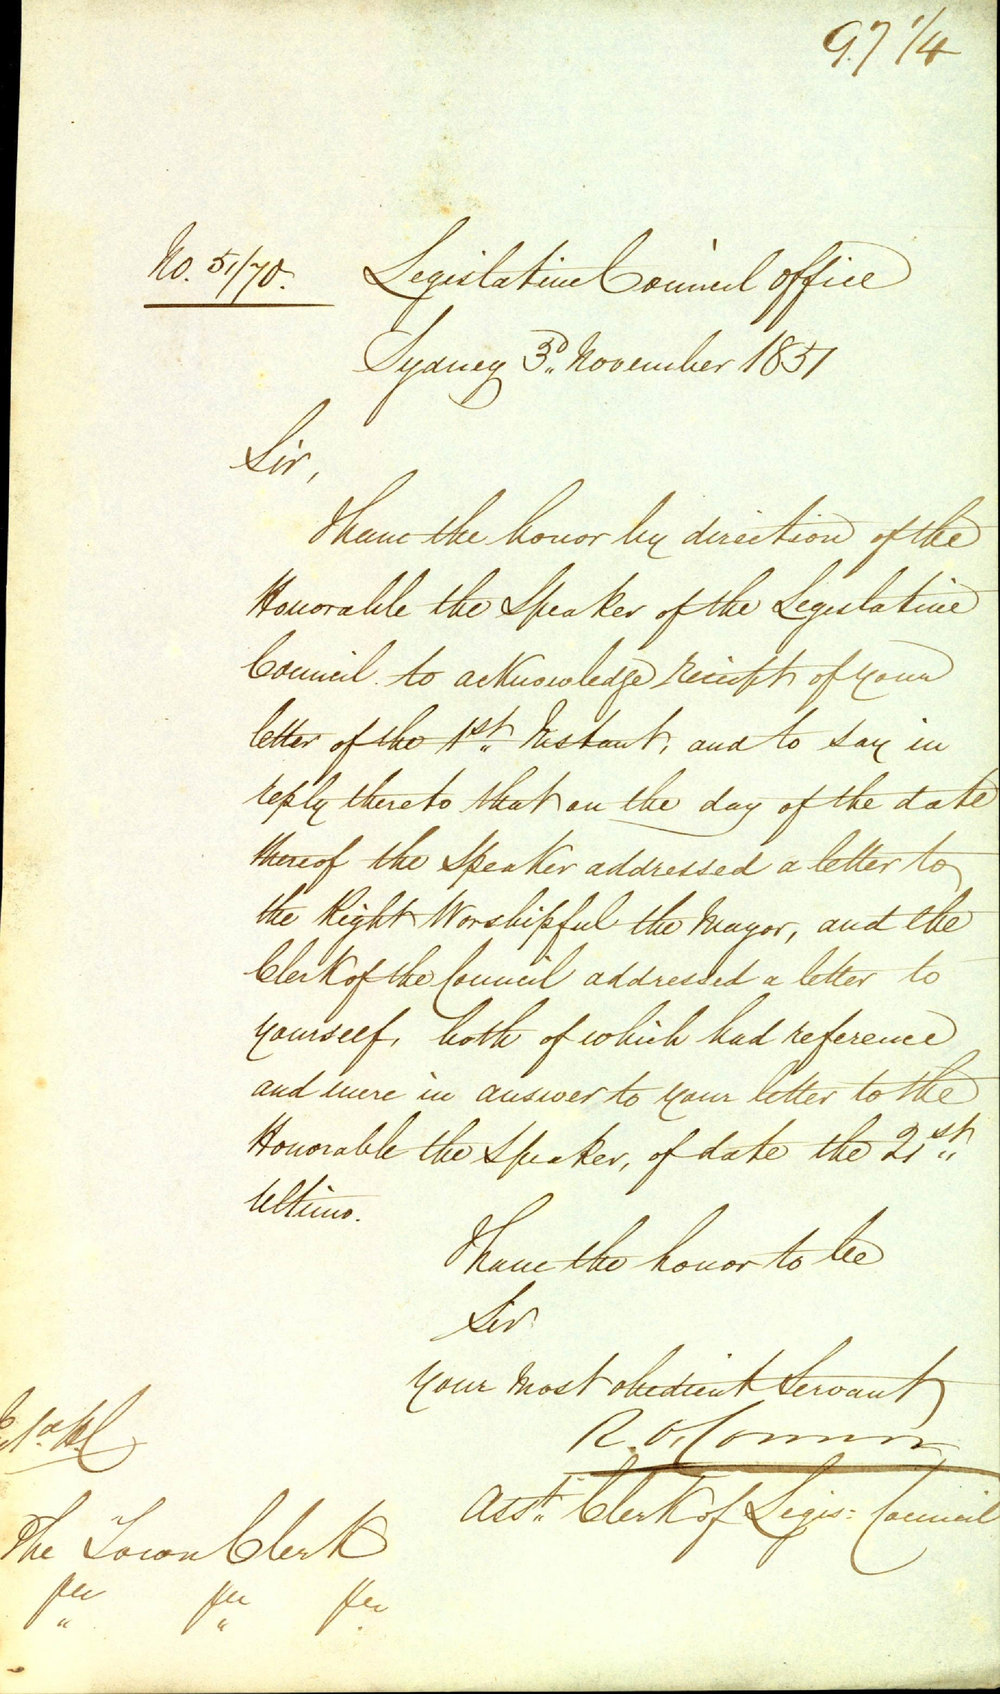 97 1/4
No. 51/70. Legislative Council Office
Sydney 3d. November 1851
Sir,
I have the honor by direction of the
Honorable the Speaker of the Legislative
Council to acknowledge receipt of your
letter of the 1st. Instant, and to say in
reply thereto that on the day of the date
thereof the Speaker addressed a letter to
the Right Worshipful the Mayor, and the
Clerk of the Council addressed a letter to
yourself, both of which had reference
and were in answer to your letter to the
Honorable the Speaker, of date the 21st.
Ultimo.
I have the honor to be
Sir
Your most obedient Servant
R. O'Connor
Asst. Clerk of Legis: Council
The Town Clerk